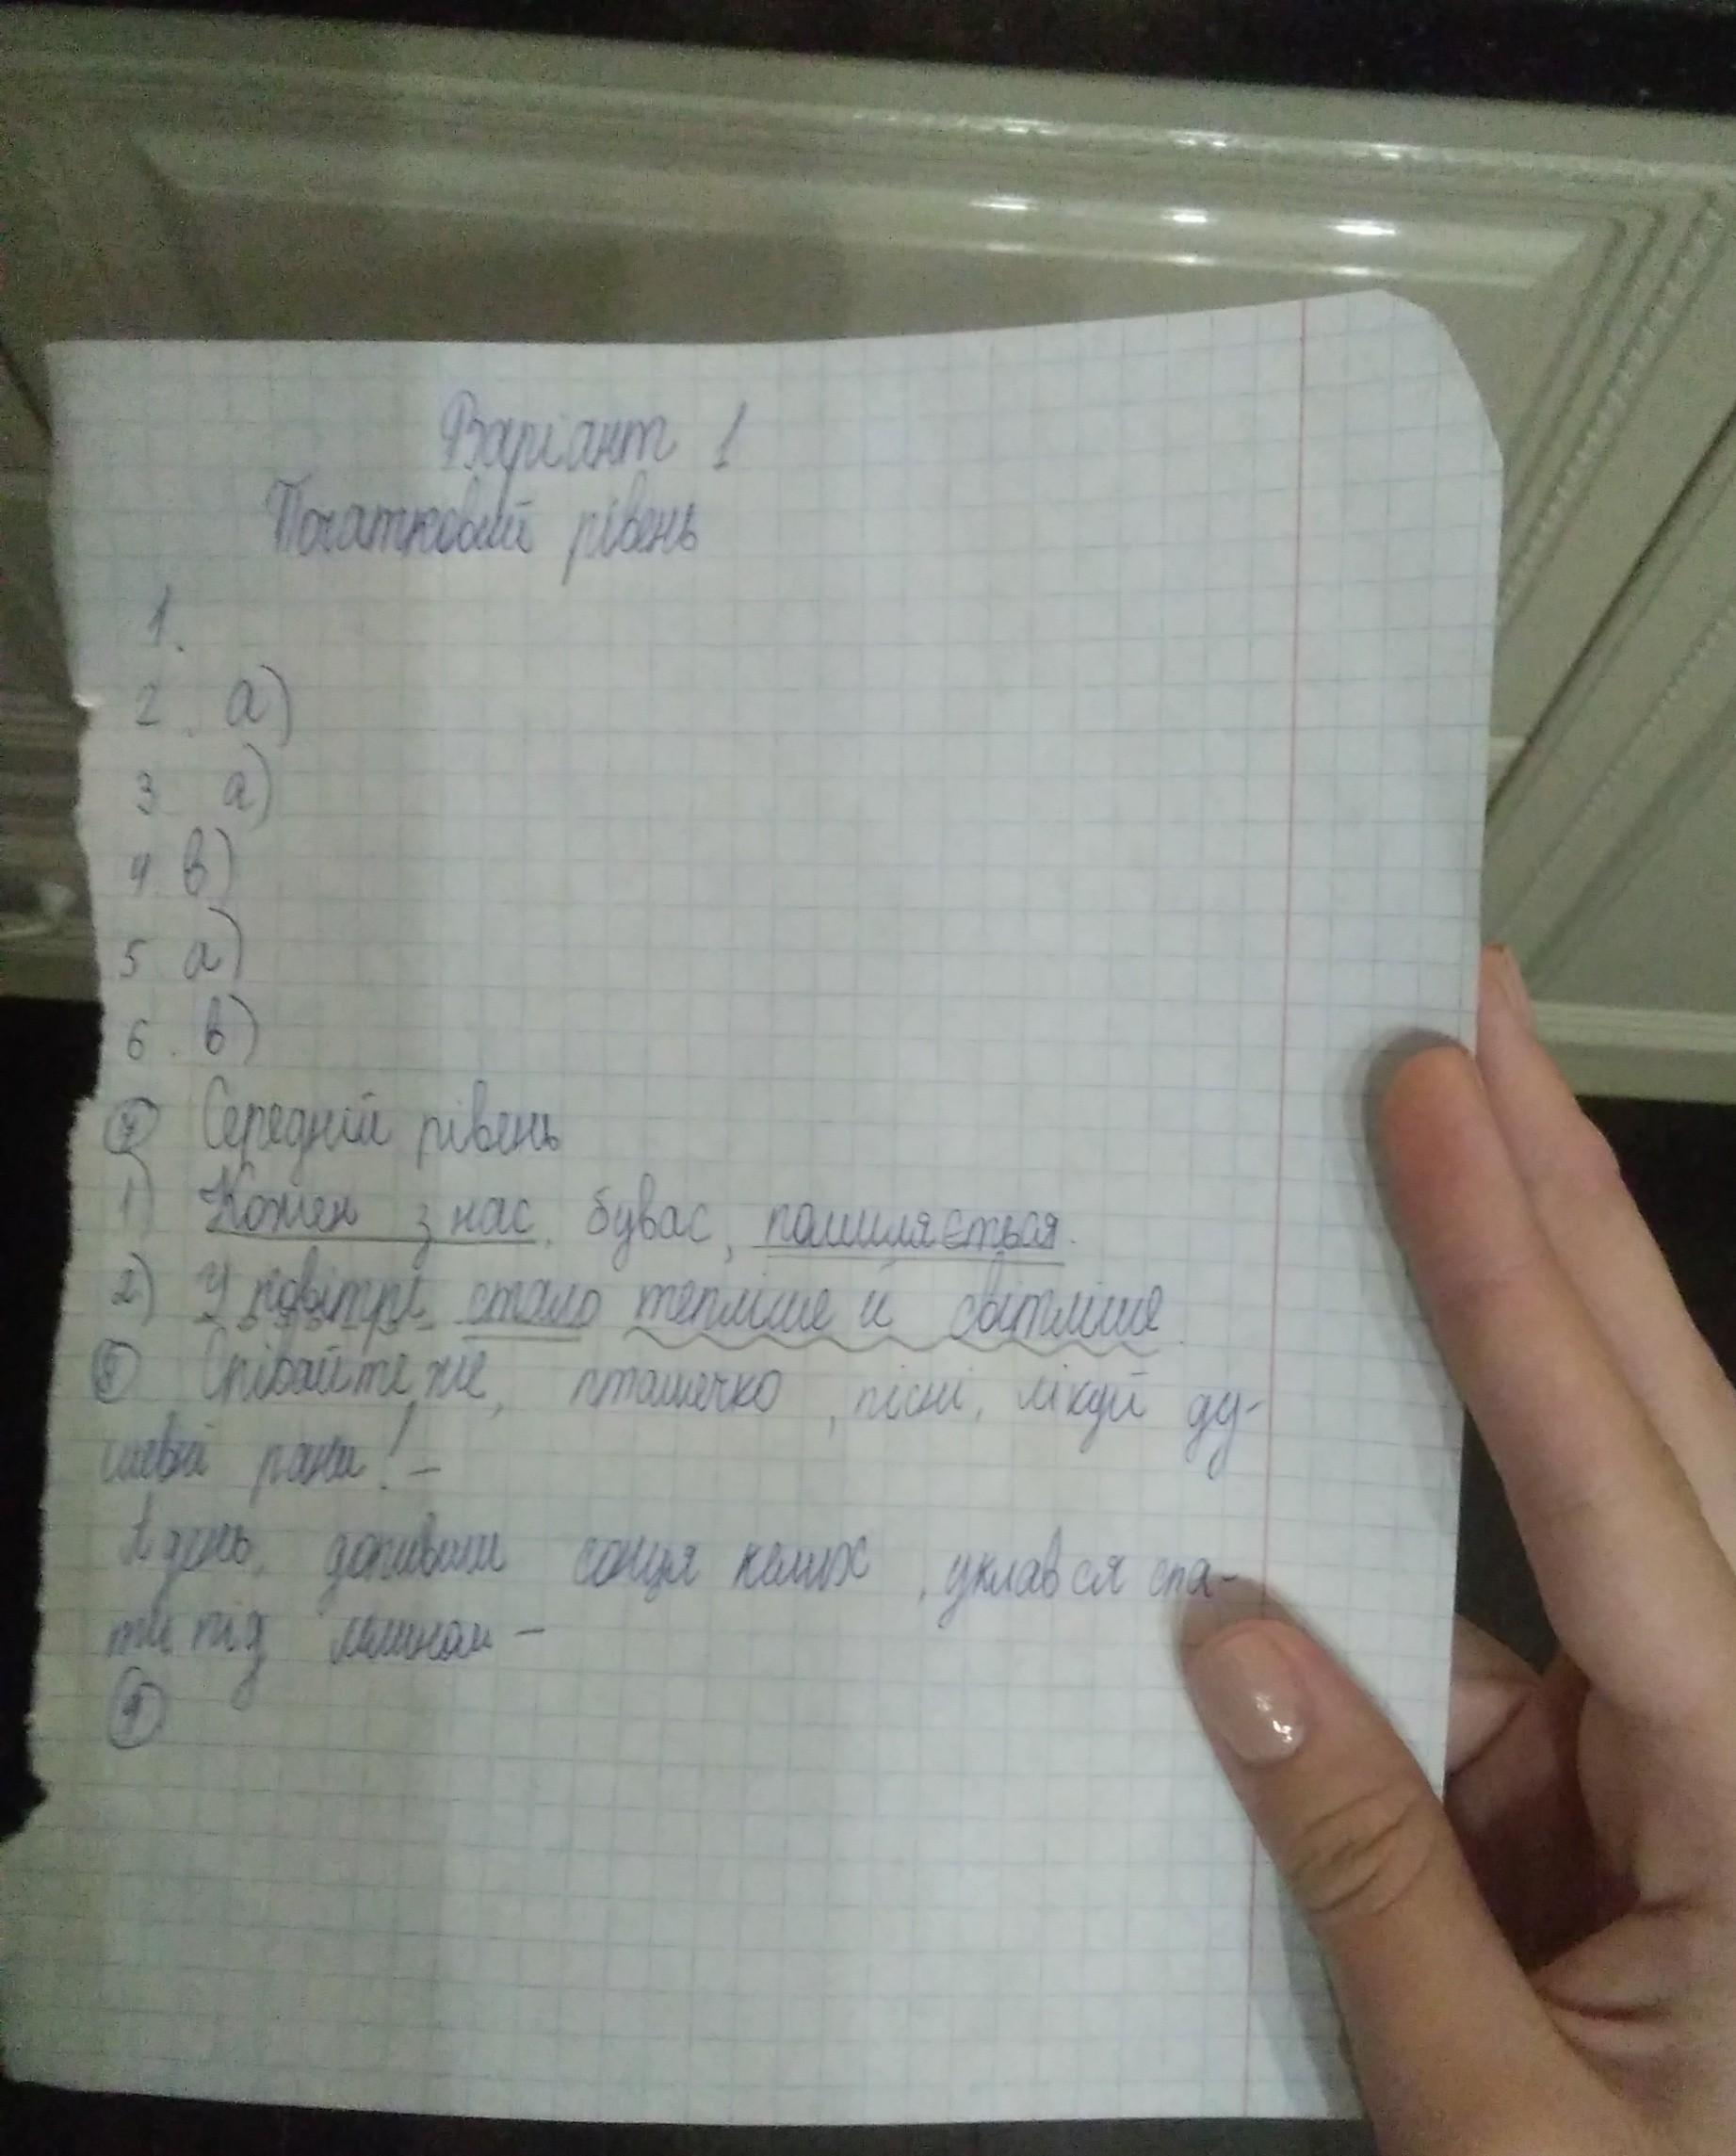 Варіант 1
Початковий рівень
1.
2. а)
3 а)
4. в)
5 а)
6. в)
⑦ Середній рівень
1) Кожен з нас, буває, помиляється.
2) У повітрі стало тепліше й світліше.
⑧ Співайте же, пташечко, пісні, лікуй ду-
шевні рани! –
А день, допивши сонця келих, уклався спа-
ти під млином –
⑨